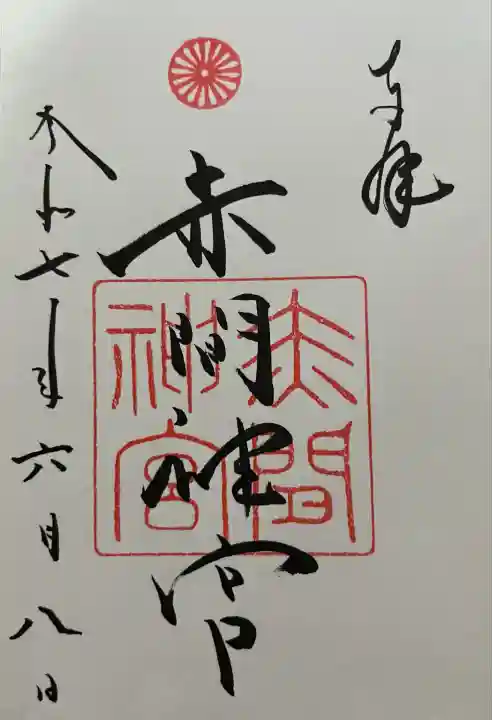 奉拝
赤間神宮
赤間
神宮
令和七年六月八日